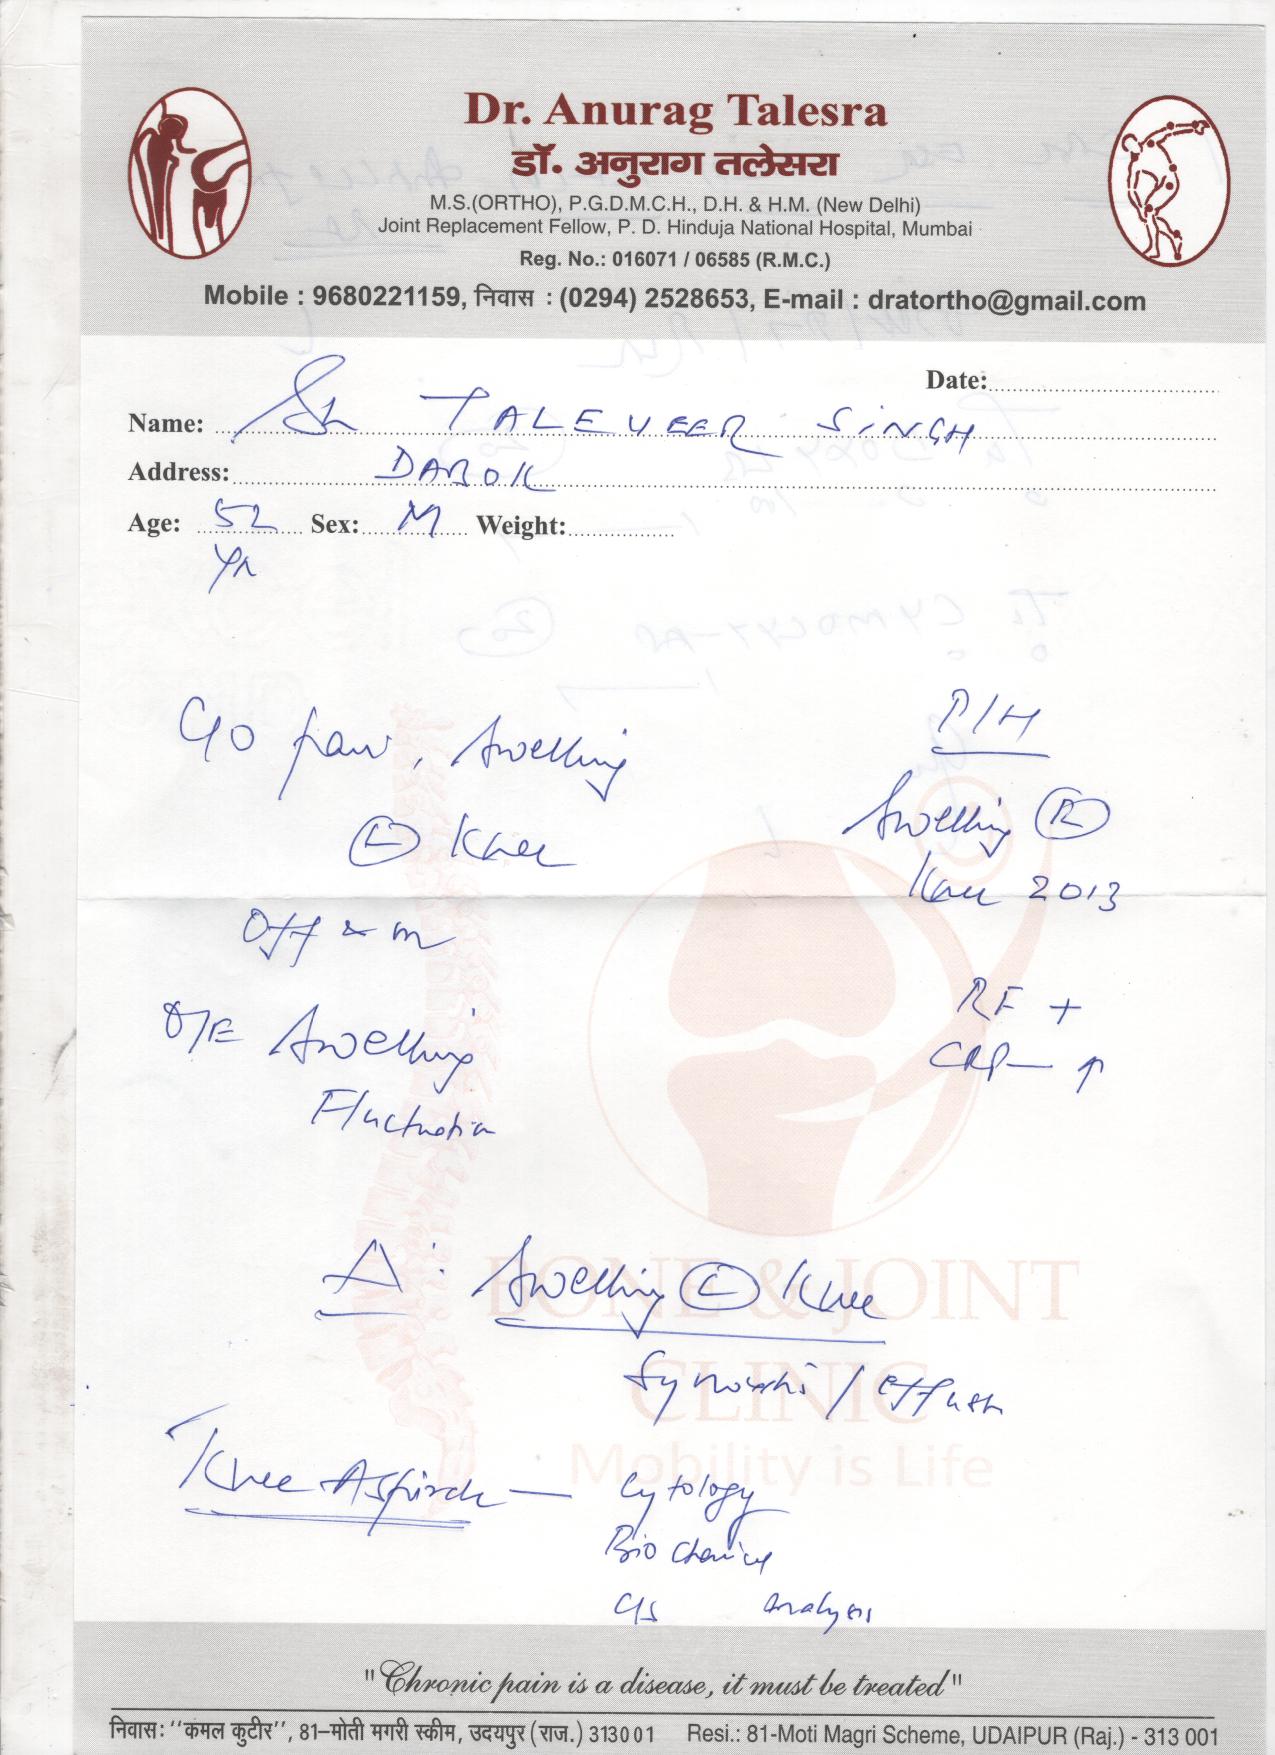 Dr. Anurag Talesra
डॉ. अनुराग तलेसरा
M.S.(ORTHO), P.G.D.M.C.H., D.H. & H.M. (New Delhi)
Joint Replacement Fellow, P. D. Hinduja National Hospital, Mumbai
Reg. No.: 016071 / 06585 (R.M.C.)
Mobile : 9680221159, निवास : (0294) 2528653, E-mail : dratortho@gmail.com
Date:
Name: Sh TALEVEER SINGH
Address: DABOK
Age: 52 Sex: M Weight:
Yr
C/O pain, Swelling
(L) Knee
Off & on
P/H
Swelling (R)
Knee 2013
RF +
CRP - ↑
O/E Swelling
Fluctuation
Δ : Swelling (L) Knee
Synovitis / Effusion
Knee Aspirate — Cytology
Biochemical
C/S analysis
BONE & JOINT
CLINIC
Mobility is Life
"Chronic pain is a disease, it must be treated"
निवास: ''कमल कुटीर'', 81–मोती मगरी स्कीम, उदयपुर (राज.) 313001 Resi.: 81-Moti Magri Scheme, UDAIPUR (Raj.) - 313 001